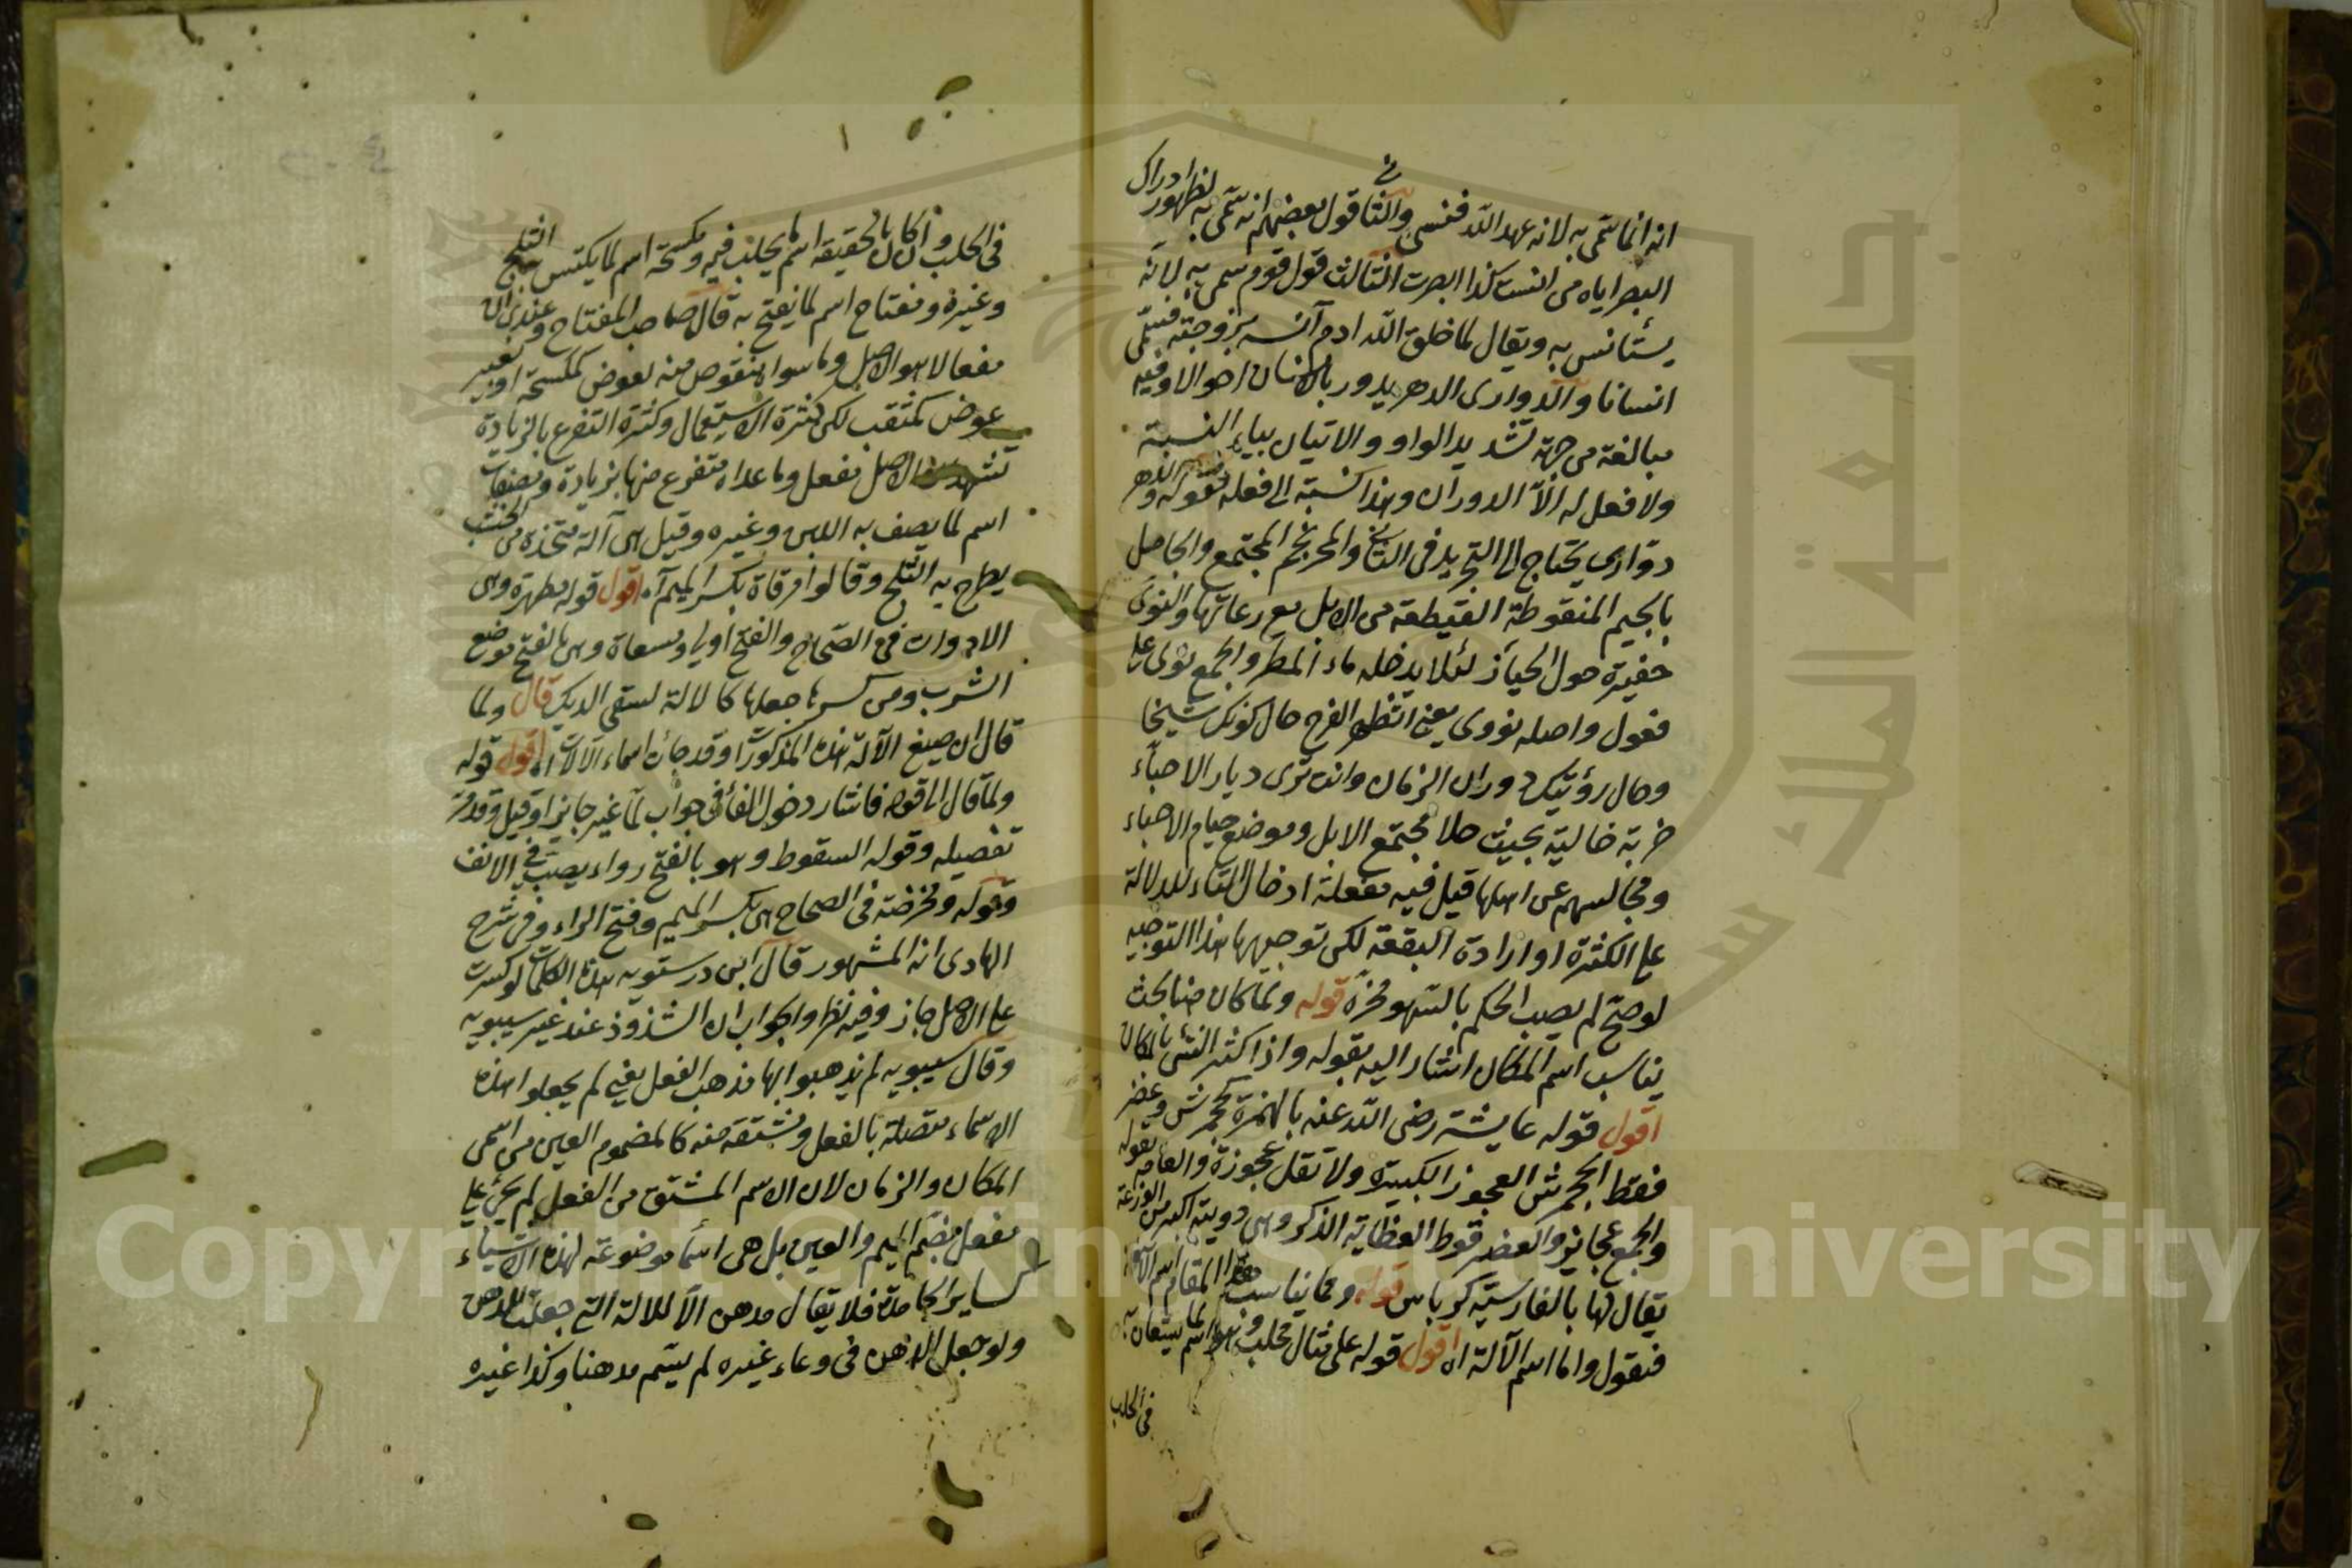 انه انما سمى به لانه عهد الله فنسى والثانى قول بعضهم انه سمى به لظهور ادراك
البصر اياه من انست كذا ابصرت الثالث قول قوم سمى به لانه
يستأنس به ويقال لما خلق الله ادم آنسه بزوجته فسمى
انسانا والدوارى الدهر يدور بالانسان احوالا وفيه
مبالغة من جهة تشديد الواو والاتيان بياء النسبة
ولا فعل له الا الدوران وهذا نسبة الى فعله فقوله والدهر
دوارى يحتاج الى التجريد فى الثانى والمحرنجم المجتمع والحاصل
بالجيم المنقوطة القطيعة من الابل مع رعاتها والنوى
حفيرة حول الخباء لئلا يدخله ماء المطر والجمع نوى على
فعول واصله نووى يعنى انتظر الفرج حال كونك شيخا
وحال رؤيتك دوران الزمان وانت ترى ديار الاحباء
خربة خالية بحيث خلا مجتمع الابل وموضع خيام الاحباء
ومجالسهم عن اهلها قيل فيه مفعلة ادخال التاء للدلالة
على الكثرة او ارادة البقعة لكن توجيهها هذا التوجيه
لو صح لم يصب الحكم بالسهو فى مخزه قوله ولما كان هنا بحث
يناسب اسم المكان اشار اليه بقوله واذا كثر الشئ بالمكان
اقول قوله عايشة رضى الله عنه بالهمزة كجحمرش وعضر
فقط الجحمرش العجوز الكبيرة ولا تقل عجوزة والعامة تقوله
والجمع عجايز والعضرفوط العظاية الذكر وهى دويبة اكبر من الوزغة
يقال لها بالفارسية كرباس قوله ومما يناسب هذا المقام اسم الآلة
فنقول واما اسم الآلة اه اقول قوله على مثال محلب وهو اسم لما يستعان به
فى الحلب
فى الحلب وان كان بالحقيقة اسم لما يحلب فيه ومكسحة اسم لما يكتس به الثلج
وغيره ومفتاح اسم لما يفتح به قال صاحب المفتاح وعندى ان
مفعالا هو الاصل وما سواه منقوص منه بعوض كمكسحة او بغير
عوض كمثقب لكن كثرة الاستعمال وكثرة التفرع بالزيادة
تشهد بان الاصل مفعل وما عداه متفرع منها بزيادة ومصفاة
اسم لما يصف به اللبن وغيره وقيل هى آلة متخذة من الخشب
يطرح به الثلج وقالوا مرقاة بكسر الميم آه اقول قوله مطهرة وهى
الادوات فى الصحاح والفتح اولى ومسعاة وهى بالفتح موضع
الشرب ومن كسرها جعلها كالالة لسقى الديك قال ولما
قال ان صيغ الآلة هذه المذكورات وقد جائت اسماء الآلات اه اقول قوله
ولما قال الى قوله فاشار دخول الفاء فى جواب لما غير جايز او قيل وقد مر
تفصيله وقوله السقوط وهو بالفتح دواء يصب فى الانف
وقوله ومحرضة فى الصحاح هى بكسر الميم وفتح الراء وفى شرح
الهادى انه المشهور قال ابن درستويه هذه الكلمات لو كسرت
على الاصل جاز وفيه نظر والجواب ان الشذوذ عند غير سيبويه
وقال سيبويه لم يذهبوا بها مذهب الفعل يعنى لم يجعلوا هذه
الاسماء متصلة بالفعل ومشتقة منه كالمضموم العين من اسمى
المكان والزمان لان الاسم المشتق من الفعل لم يجئ على
مفعل بضم الميم والعين بل هى اسماء موضوعة لهذه الاشياء
كساير الجامدة فلا يقال مدهن الا للالة التى جعلت للدهن
ولو جعل الدهن فى وعاء غيره لم يسم مدهنا وكذا غيره
Copyright © King Saud University
جامعة الملك سعود